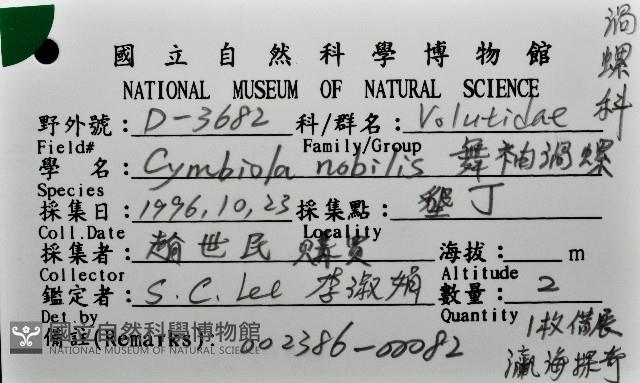 渦螺科
國立自然科學博物館
NATIONAL MUSEUM OF NATURAL SCIENCE
野外號：D-3682 科/群名：Volutidae
Field# Family/Group
學 名：Cymbiola nobilis 舞袖渦螺
Species
採集日：1996,10,23 採集點：墾丁
Coll.Date Locality
採集者：趙世民 購買 海拔： m
Collector Altitude
鑑定者：S.C.Lee 李淑娟 數量：2
Det.by Quantity
備註(Remarks)：002386-00082 1枚借展
瀛海探奇
國立自然科學博物館
NATIONAL MUSEUM OF NATURAL SCIENCE